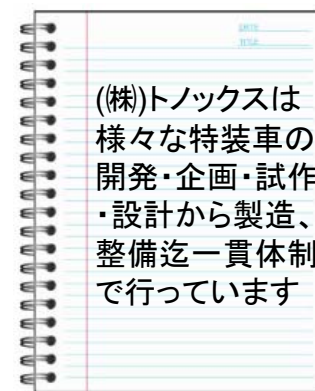 DATE
TITLE
(㈱)トノックスは
様々な特装車の
開発・企画・試作
・設計から製造、
整備迄一貫体制
で行っています